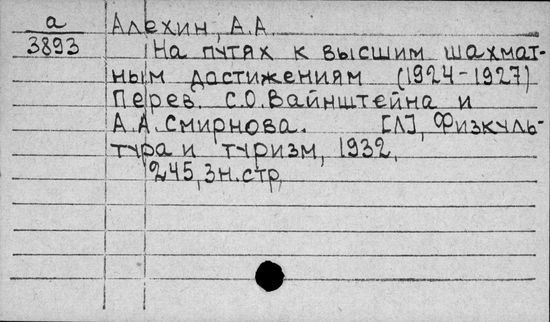 а Алехин, А.А.
3893 На путях к высшим шахмат-
ным достижениям (1924-1927)
Перев. С.О. Вайнштейна и
А.А. Смирнова. [Л], Физкуль-
тура и туризм, 1932.
245, 3 н. стр.